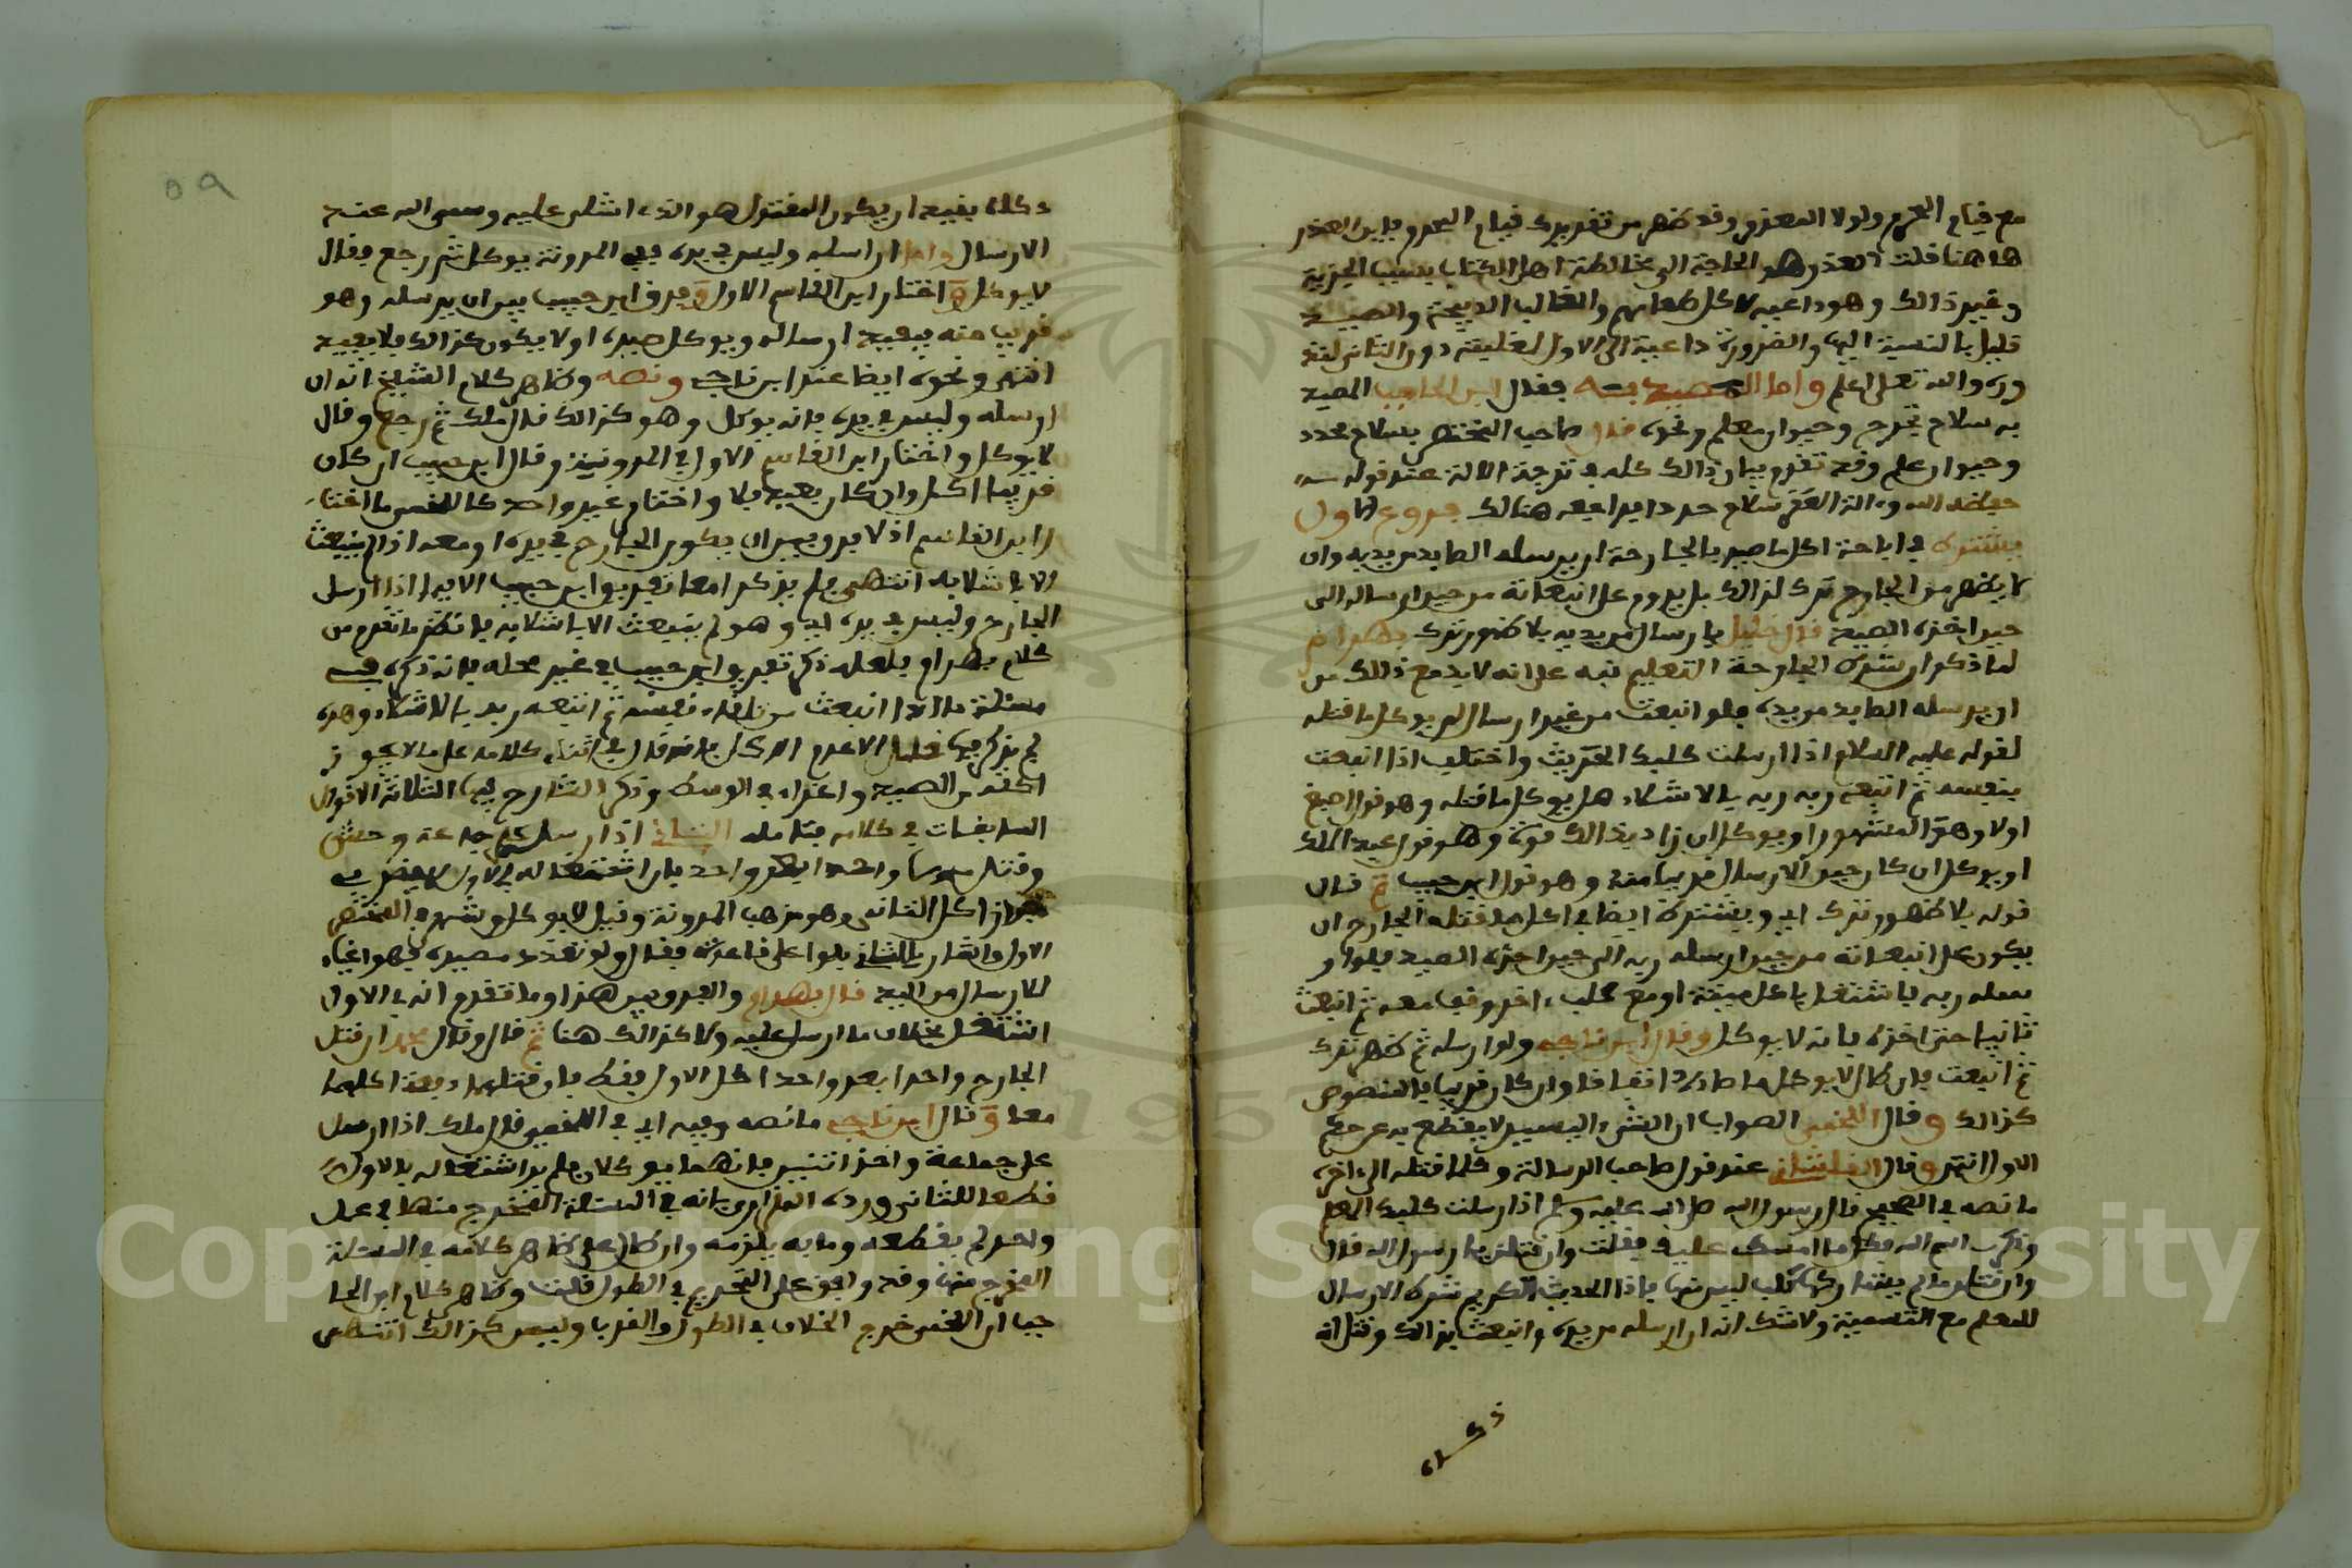 مع قيام المحرم ولولا المعذر وقد ظهر من تقريرك قيام المحرم فاين العذر
ها هنا قلت العذر هو الحاجة الى مخالطة اهل الكتاب بسبب الجزية
وغير ذالك وهو داعية لاكل طعامهم والغالب الذبيحة والصيد
قليل بالنسبة اليها والضرورة داعية الى الاول لغلبته دون الثاني لنذ
وره والله تعلى اعلم واما المصيد به فقال ابن الحاجب المصيد
به سلاح يجرح وحيوان معلم ونحوه قال صاحب المختصر بسلاح محدد
وحيوان علم وقد تقدم بيان ذالك كله في ترجمة الالة عند قوله
حفظه الله والة العقر سلاح حددا فراجعه هنالك فروع الاول
يشترط في اباحة اكل ما صيد بالجارحة ان يرسله الصايد من يديه وان
لا يظهر من الجارح ترك لذالك بل يدوم على انبعاثه من حين ارساله الى
حين اخذه الصيد قال خليل بارسال من يديه بلا ظهور ترك بهرام
لما ذكر ان شرط الجارحة التعليم نبه على انه لا بد مع ذالك من
ان يرسله الصايد من يده فلو انبعث من غير ارسال لم يوكل ما قتله
لقوله عليه السلام اذا ارسلت كلبك الحديث واختلف اذا انبعث
بنفسه ثم اتبعه ربه بالاشلاء هل يوكل ما قتله وهو قول اصبغ
اولا وهو المشهور او يوكل ان زاد بذالك قوة وهو قول عبد الملك
او يوكل ان كان حين الارسال قريبا منه وهو قول ابن حبيب ثم قال
قوله بلا ظهور ترك اي ويشترط ايضا في اكل ما قتله الجارح ان
يكون على انبعاثه من حين ارسله ربه الى حين اخذه الصيد فلو ار
سله ربه فاشتغل باكل ميتة او مع كلب اخر وقف معه ثم انبعث
ثانيا حتى اخذه فانه لا يوكل وقال ابن ناجي ولو ارسله ثم ظهر ترك
ثم انبعث فان طال لا يوكل ما صاده اتفاقا وان كان قريبا فالمنصوص
كذالك وقال اللخمي الصواب ان الشيء اليسير لا يقطع به عن حكم
الاول انتهى وقال الفاكهاني عند قول صاحب الرسالة وكلما قتله الى اخره
ما نصه في الصحيح قال رسول الله صلى الله عليه وسلم اذا ارسلت كلبك المعلم
وذكرت اسم الله فكل ما امسك عليك فقلت وان قتلن يا رسول الله قال
وان قتلن ما لم يشاركها كلب ليس منها فاذا الحديث الكريم شرط الارسال
للمعلم مع التسمية ولا شك انه ان ارسله من يده وانبعث بذالك وقتل انه
ذكاه
٥٩
ذكاه بقيد ان يكون المقتول هو الذي اشلى عليه وسمى الله عند
الارسال واما ان ارسله وليس في يده ففي المدونة يوكل ثم رجع فقال
لا يوكل واختار ابن القاسم الاول وفرق ابن حبيب بين ان يرسله وهو
قريب منه فيفيد ارساله ويوكل صيده او لا يكون كذالك فلا يفيد
انتهى ونحوه ايضا عند ابن ناجي ونصه وظاهر كلام الشيخ انه ان
ارسله وليس في يده فانه يوكل وهو كذالك قال ملك ثم رجع وقال
لا يوكل واختار ابن القاسم الاول في المدونة وقال ابن حبيب ان كان
قريبا اكل وان كان بعيدا فلا واختار غير واحد كاللخمي ما اختا
را بن القاسم اذ لا فرق بين ان يكون الجارح في يده او معه اذا لم ينبعث
الا باشلايه انتهى فلم يذكرا معا تفريق ابن حبيب الا فيما اذا ارسل
الجارح وليس في يده اي وهو لم ينبعث الا باشلايه فانظر ما تقدم من
كلام بهرام فلعله ذكر تفريق ابن حبيب في غير محله فانه ذكره في
مسئلة ما اذا انبعث من تلقاء نفسه ثم اتبعه ربه بالاشلاء وهذه
لم يذكر فيها خليل الا عدم الاكل فانه قال في اثناء كلامه على ما لا يجوز
اكله من الصيد واغراء في الوسط وذكر الشارح فيها الثلاثة الاقوال
السابقات في كلامه فتامله الثاني اذا ارسل على جماعة وحش
وقتل منها واحدا بعد واحد فان اشتغاله بالاول لا يضر في
جواز اكل الثاني وهو مذهب المدونة وقيل لا يوكل وشهر في المختصر
الاول واشار للثاني بلو على قاعدته فقال ولو تعدد مصيده فهو اغياء
للارسال من اليد قال بهرام والفرق بين هذا وما تقدم انه في الاول
اشتغل بخلاف ما ارسل عليه ولا كذالك هنا ثم قال وقال محمد ان قتل
الجارح واحدا بعد واحد اكل الاول فقط فان قتلهما دفعة اكلهما
معا وقال ابن ناجي ما نصه وفيه اي في اللخمي قال ملك اذا ارسل
على جماعة واخذ اثنين فانهما يوكلان فلم ير اشتغاله بالاول
قطعا للثاني ورده المازري بانه في المسئلة المخرج منها في عمل
واحد لم يقطعه وما به يلزمه وان طال على ظاهر كلامه في المسئلة
المخرج منها وقد وافق على التحريم في الطول قلت وظاهر كلام ابن الحا
جب ان اللخمي خرج الخلاف في الطول والقرب وليس كذالك انتهى
Copyright © King Saud University
1957